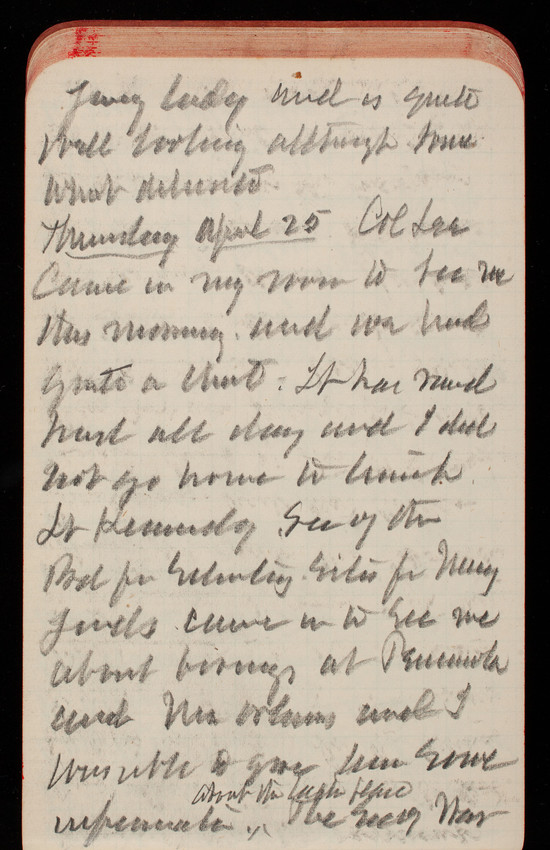 young lady and is quite
well looking although some
what delicate
Thursday April 25 Col Lee
Came in my room to see me
this morning and we had
quite a chat. It has raind
hard all day and I did
not go home to lunch.
Lt Kennedy Secy of the
Bd for Selecting Sites for Navy
Yards came in to See me
about borings at Pensacola
and New Orleans and I
was able to give him Some
about the
information. The Secy War